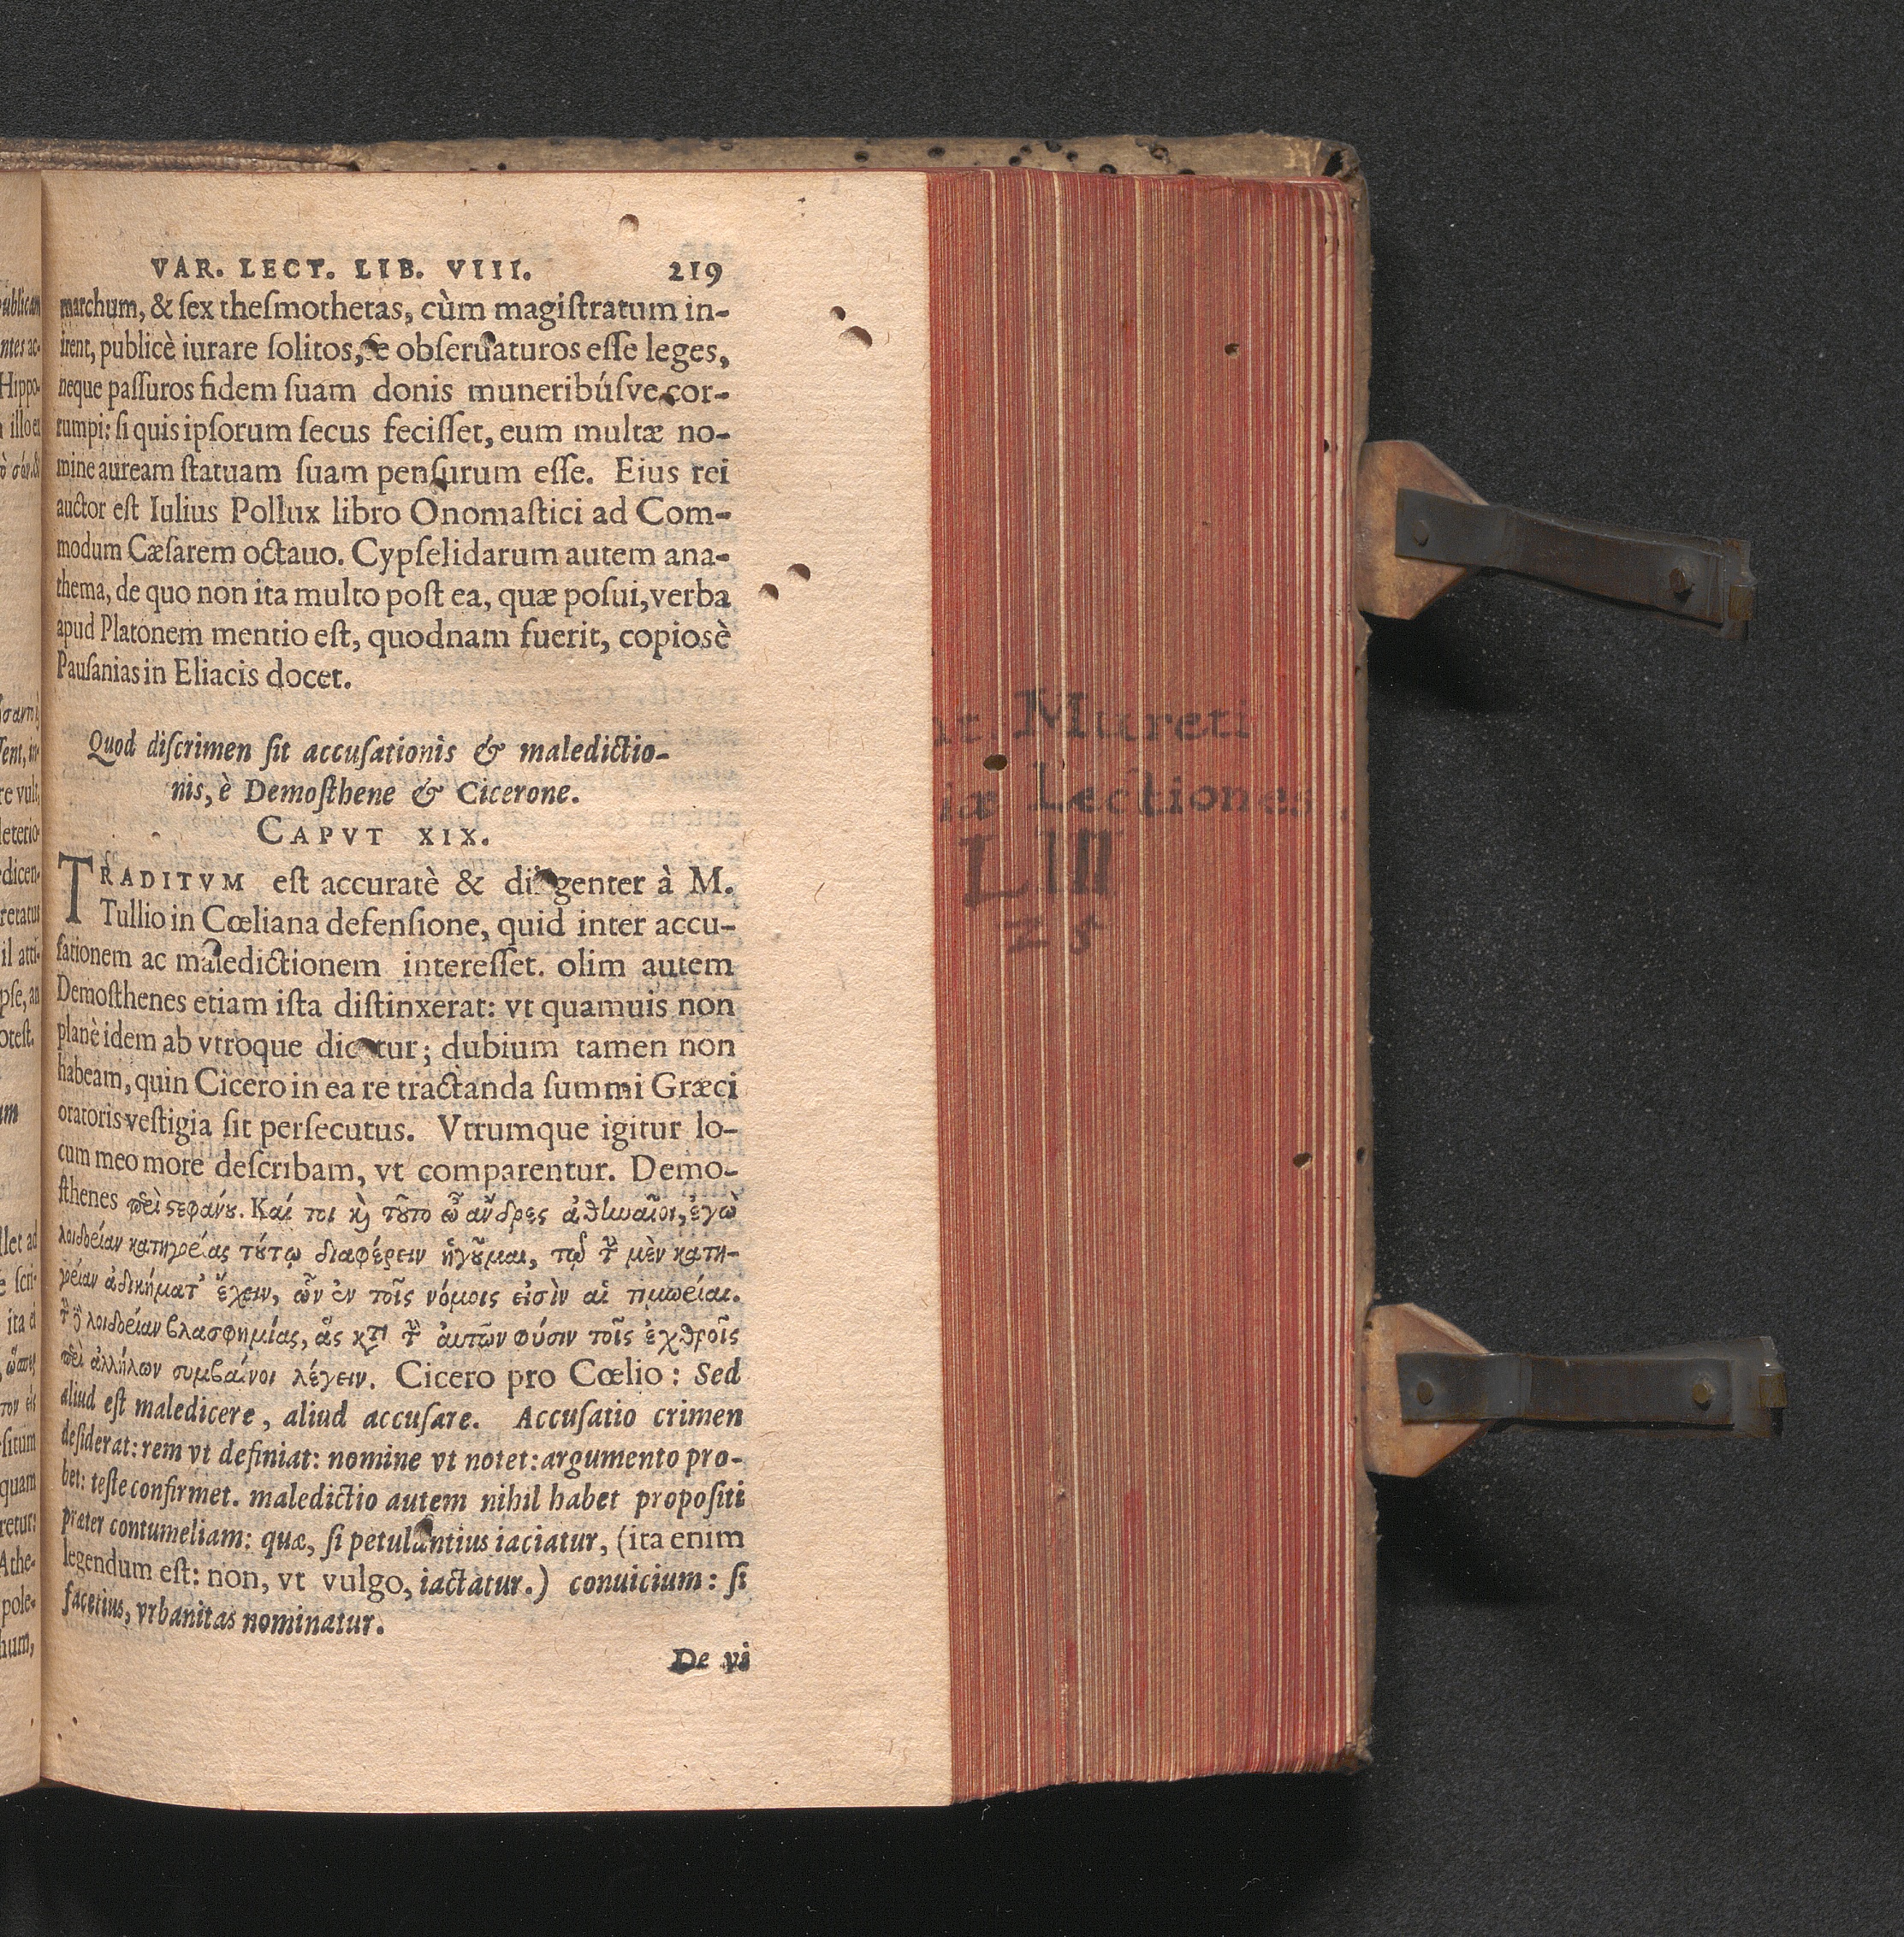 VAR. LECT. LIB. VIII. 219
marchum, & ſex theſmothetas, cùm magiſtratum in-
irent, publicè iurare ſolitos, ſe obſeruaturos eſſe leges,
neque paſſuros fidem ſuam donis muneribúſve cor-
rumpi: ſi quis ipſorum ſecus feciſſet, eum multæ no-
mine auream ſtatuam ſuam penſurum eſſe. Eius rei
auctor eſt Iulius Pollux libro Onomaſtici ad Com-
modum Cæſarem octauo. Cypſelidarum autem ana-
thema, de quo non ita multo poſt ea, quæ poſui, verba
apud Platonem mentio eſt, quodnam fuerit, copiosè
Pauſanias in Eliacis docet.
Quod diſcrimen ſit accuſationis & maledictio-
nis, è Demoſthene & Cicerone.
CAPVT XIX.
TRADITVM eſt accuratè & diligenter à M.
Tullio in Cœliana defenſione, quid inter accu-
ſationem ac maledictionem intereſſet. olim autem
Demoſthenes etiam iſta diſtinxerat: vt quamuis non
planè idem ab vtroque dicatur; dubium tamen non
habeam, quin Cicero in ea re tractanda ſummi Græci
oratoris veſtigia ſit perſecutus. Vtrumque igitur lo-
cum meo more deſcribam, vt comparentur. Demo-
ſthenes περὶ στεφάνου. Καί τοι καὶ τοῦτο ὦ ἄνδρες ἀθηναῖοι, ἐγὼ
λοιδορίαν κατηγορίας τούτῳ διαφέρειν ἡγοῦμαι, τῷ τὴν μὲν κατη-
γορίαν ἀδικήματ' ἔχειν, ὧν ἐν τοῖς νόμοις εἰσὶν αἱ τιμωρίαι.
τὴν δὲ λοιδορίαν βλασφημίας, ἃς κατὰ τὴν αὑτῶν φύσιν τοῖς ἐχθροῖς
περὶ ἀλλήλων συμβαίνοι λέγειν. Cicero pro Cœlio: Sed
aliud eſt maledicere, aliud accuſare. Accuſatio crimen
deſiderat: rem vt definiat: nomine vt notet: argumento pro-
bet: teſte confirmet. maledictio autem nihil habet propoſiti
præter contumeliam: quæ, ſi petulantius iaciatur, (ita enim
legendum eſt: non, vt vulgo, iactatur.) conuicium: ſi
facetius, vrbanitas nominatur.
De vi
Mureti
Lectiones
L III
25